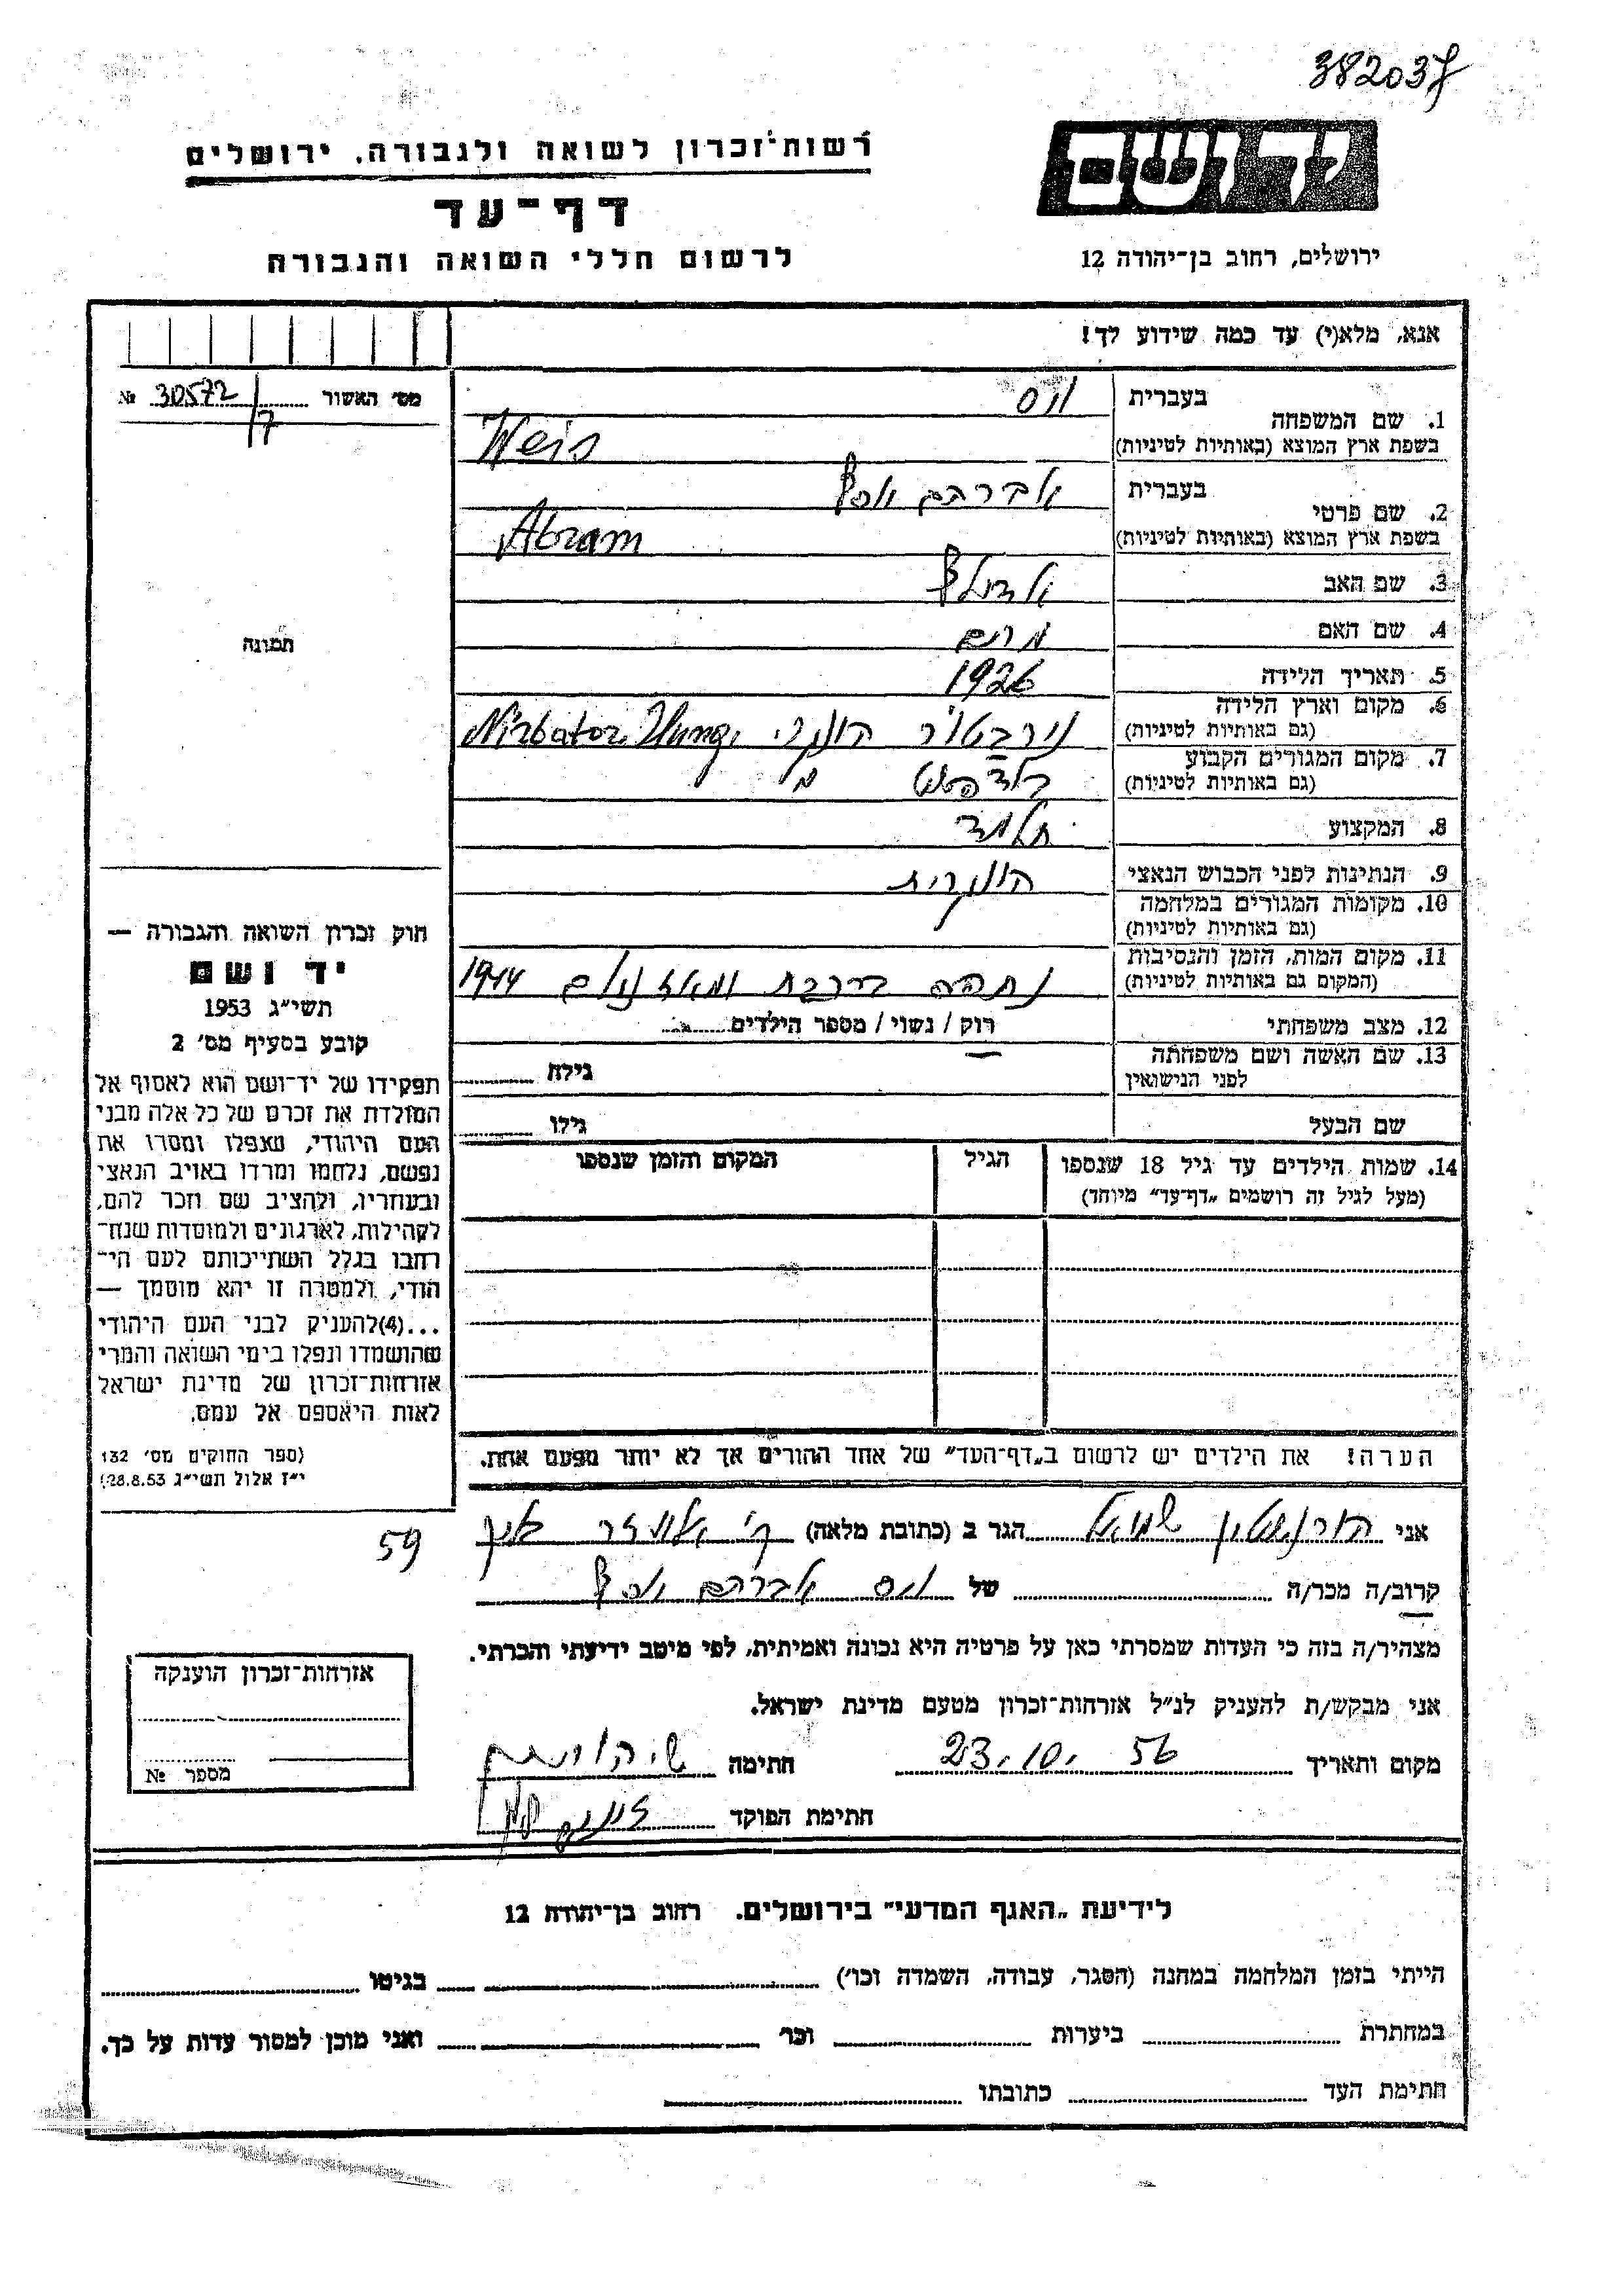 382037
יד ושם
רשות־זכרון לשואה ולגבורה, ירושלים
דף־עד
לרשום חללי השואה והגבורה
ירושלים, רחוב בן־יהודה 12
אנא, מלא(י) עד כמה שידוע לך!
מס׳ האשור 30572 №
/7
1. שם המשפחה בעברית וויס
בשפת ארץ המוצא (באותיות לטיניות) Weis
2. שם פרטי בעברית אברהם יוסף
בשפת ארץ המוצא (באותיות לטיניות) Abram
3. שם האב אדולף
4. שם האם מרים
5. תאריך הלידה 1926
6. מקום וארץ הלידה (גם באותיות לטיניות) נירבטור הונגרי, Nirbator Hung
7. מקום המגורים הקבוע (גם באותיות לטיניות)
8. המקצוע תלמיד
9. הנתינות לפני הכבוש הנאצי הונגרית
10. מקומות המגורים במלחמה (גם באותיות לטיניות)
11. מקום המות, הזמן והנסיבות (המקום גם באותיות לטיניות) 1944
12. מצב משפחתי רוק / נשוי / מספר הילדים
13. שם האשה ושם משפחתה לפני הנישואין גילה
שם הבעל גילו
14. שמות הילדים עד גיל 18 שנספו הגיל המקום והזמן שנספו
(מעל לגיל זה רושמים „דף־עד” מיוחד)
הערה! את הילדים יש לרשום ב„דף־העד” של אחד ההורים אך לא יותר מפעם אחת.
תמונה
חוק זכרון השואה והגבורה —
יד ושם
תשי״ג 1953
קובע בסעיף מס׳ 2
תפקידו של יד־ושם הוא לאסוף אל
המולדת את זכרם של כל אלה מבני
העם היהודי, שנפלו ומסרו את
נפשם, נלחמו ומרדו באויב הנאצי
ובעוזריו, ולהציב שם וזכר להם,
לקהילות, לארגונים ולמוסדות שנח־
רבו בגלל השתייכותם לעם הי־
הודי, ולמטרה זו יהא מוסמך —
...(4) להעניק לבני העם היהודי
שהושמדו ונפלו בימי השואה והמרי
אזרחות־זכרון של מדינת ישראל
לאות היאספם אל עמם.
(ספר החוקים מס׳ 132
י״ז אלול תשי״ג 28.8.53)
אני הורנשטין שמואל הגר ב (כתובת מלאה)
59
קרוב/ה מכר/ה של וויס אברהם יוסף
מצהיר/ה בזה כי העדות שמסרתי כאן על פרטיה היא נכונה ואמיתית, לפי מיטב ידיעתי והכרתי.
אני מבקש/ת להעניק לנ״ל אזרחות־זכרון מטעם מדינת ישראל.
מקום ותאריך 23.10.56 חתימה
חתימת הפוקד
אזרחות־זכרון הוענקה
מספר №
לידיעת „האגף המדעי” בירושלים. רחוב בן־יהודה 12
הייתי בזמן המלחמה במחנה (הסגר, עבודה, השמדה וכו׳) בגיטו
במחתרת ביערות וכו׳ ואני מוכן למסור עדות על כך.
חתימת העד כתובתו